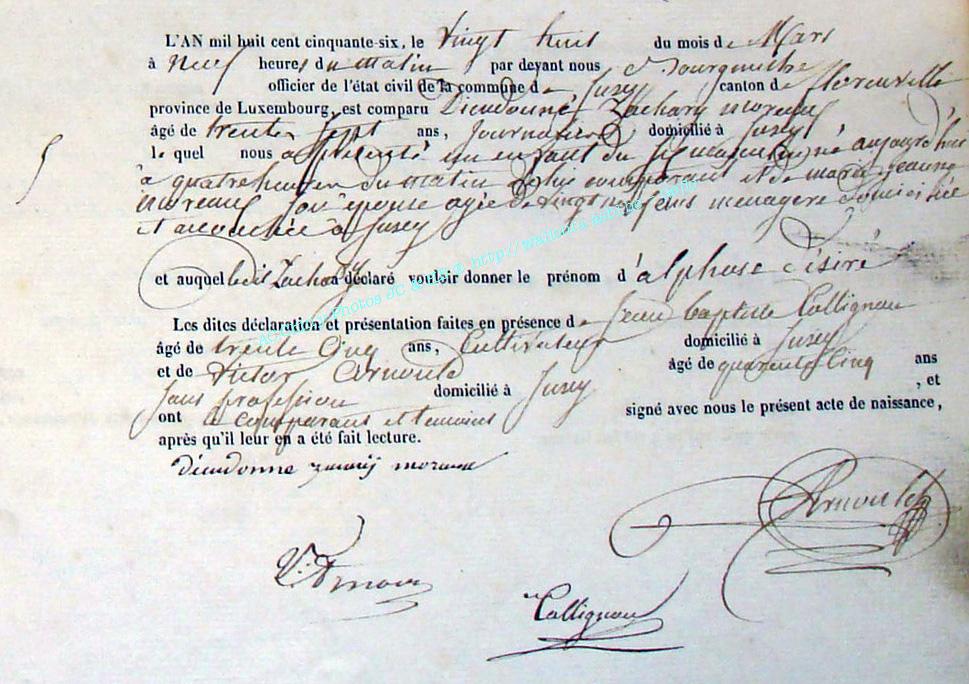 L'AN mil huit cent cinquante-six, le vingt huit du mois de Mars
à neuf heures du matin par devant nous
officier de l'état civil de la commune de Jusey canton de florenville
province de Luxembourg, est comparu Dieudonné Zachary moreau
âgé de trente sept ans, Journalier domicilié à Jusey
le quel nous a présenté un enfant du né aujourd'hui
à quatre heures du matin de lui comparant et de marie jeanne
moreaux son épouse agée de vingt neuf ans menagère domiciliée
et accouchée à Jusey
et auquel ledit Zachary a déclaré vouloir donner le prénom d'alphose désiré
Les dites déclaration et présentation faites en présence de Jean baptiste Collignon
âgé de trente Cinq ans, Cultivateur domicilié à Jusey
et de Victor Arnould âgé de quarante Cinq ans
sans profession domicilié à Jusey , et
ont le comparant et temoins signé avec nous le présent acte de naissance,
après qu'il leur en a été fait lecture.
dieudonne moreau
Arnould
V. Arnould
Collignon
http://wallonia.asbl.be